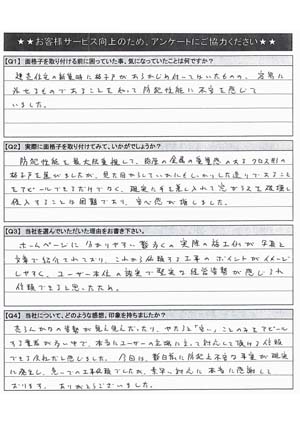 ★★お客様サービス向上のため、アンケートにご協力ください★★
【Q1】面格子を取り付ける前に困っていた事、気になっていたことは何ですか？
建売住宅の新築時に格子があらかじめ付いてはいたものの、容易に
外せるものであることを知って防犯性能に不安を感じて
いました。
【Q2】実際に面格子を取り付けてみて、いかがでしょうか？
防犯性能を最大限重視して、
格子戸を選びましたが、見た目からしていかにもしっかりした造りで
アピールできるだけでなく、現実に手を差し入れて窓ガラスを破壊し
侵入することは困難であり、安心感が増しました。
【Q3】当社を選んでいただいた理由をお書き下さい。
ホームページに分かりやすい数多くの実際の施工例が写真と
文章で紹介されており、これから依頼する工事のポイントがイメージ
しやすく、ユーザー本位の誠実で堅実な経営姿勢が感じられ
信頼できると思ったため。
【Q4】当社について、どのような感想、印象を持ちましたか？
売らんかなの姿勢が見え見えだったり、やたらと「安い」ことのみをアピール
する業者が多い中で、本当にユーザーの立場に立って対応して頂ける信頼
できる会社だと感じました。今回は、
に発生し、急いでの工事依頼でしたが、素早い対応に本当に感謝して
おります。ありがとうございました。